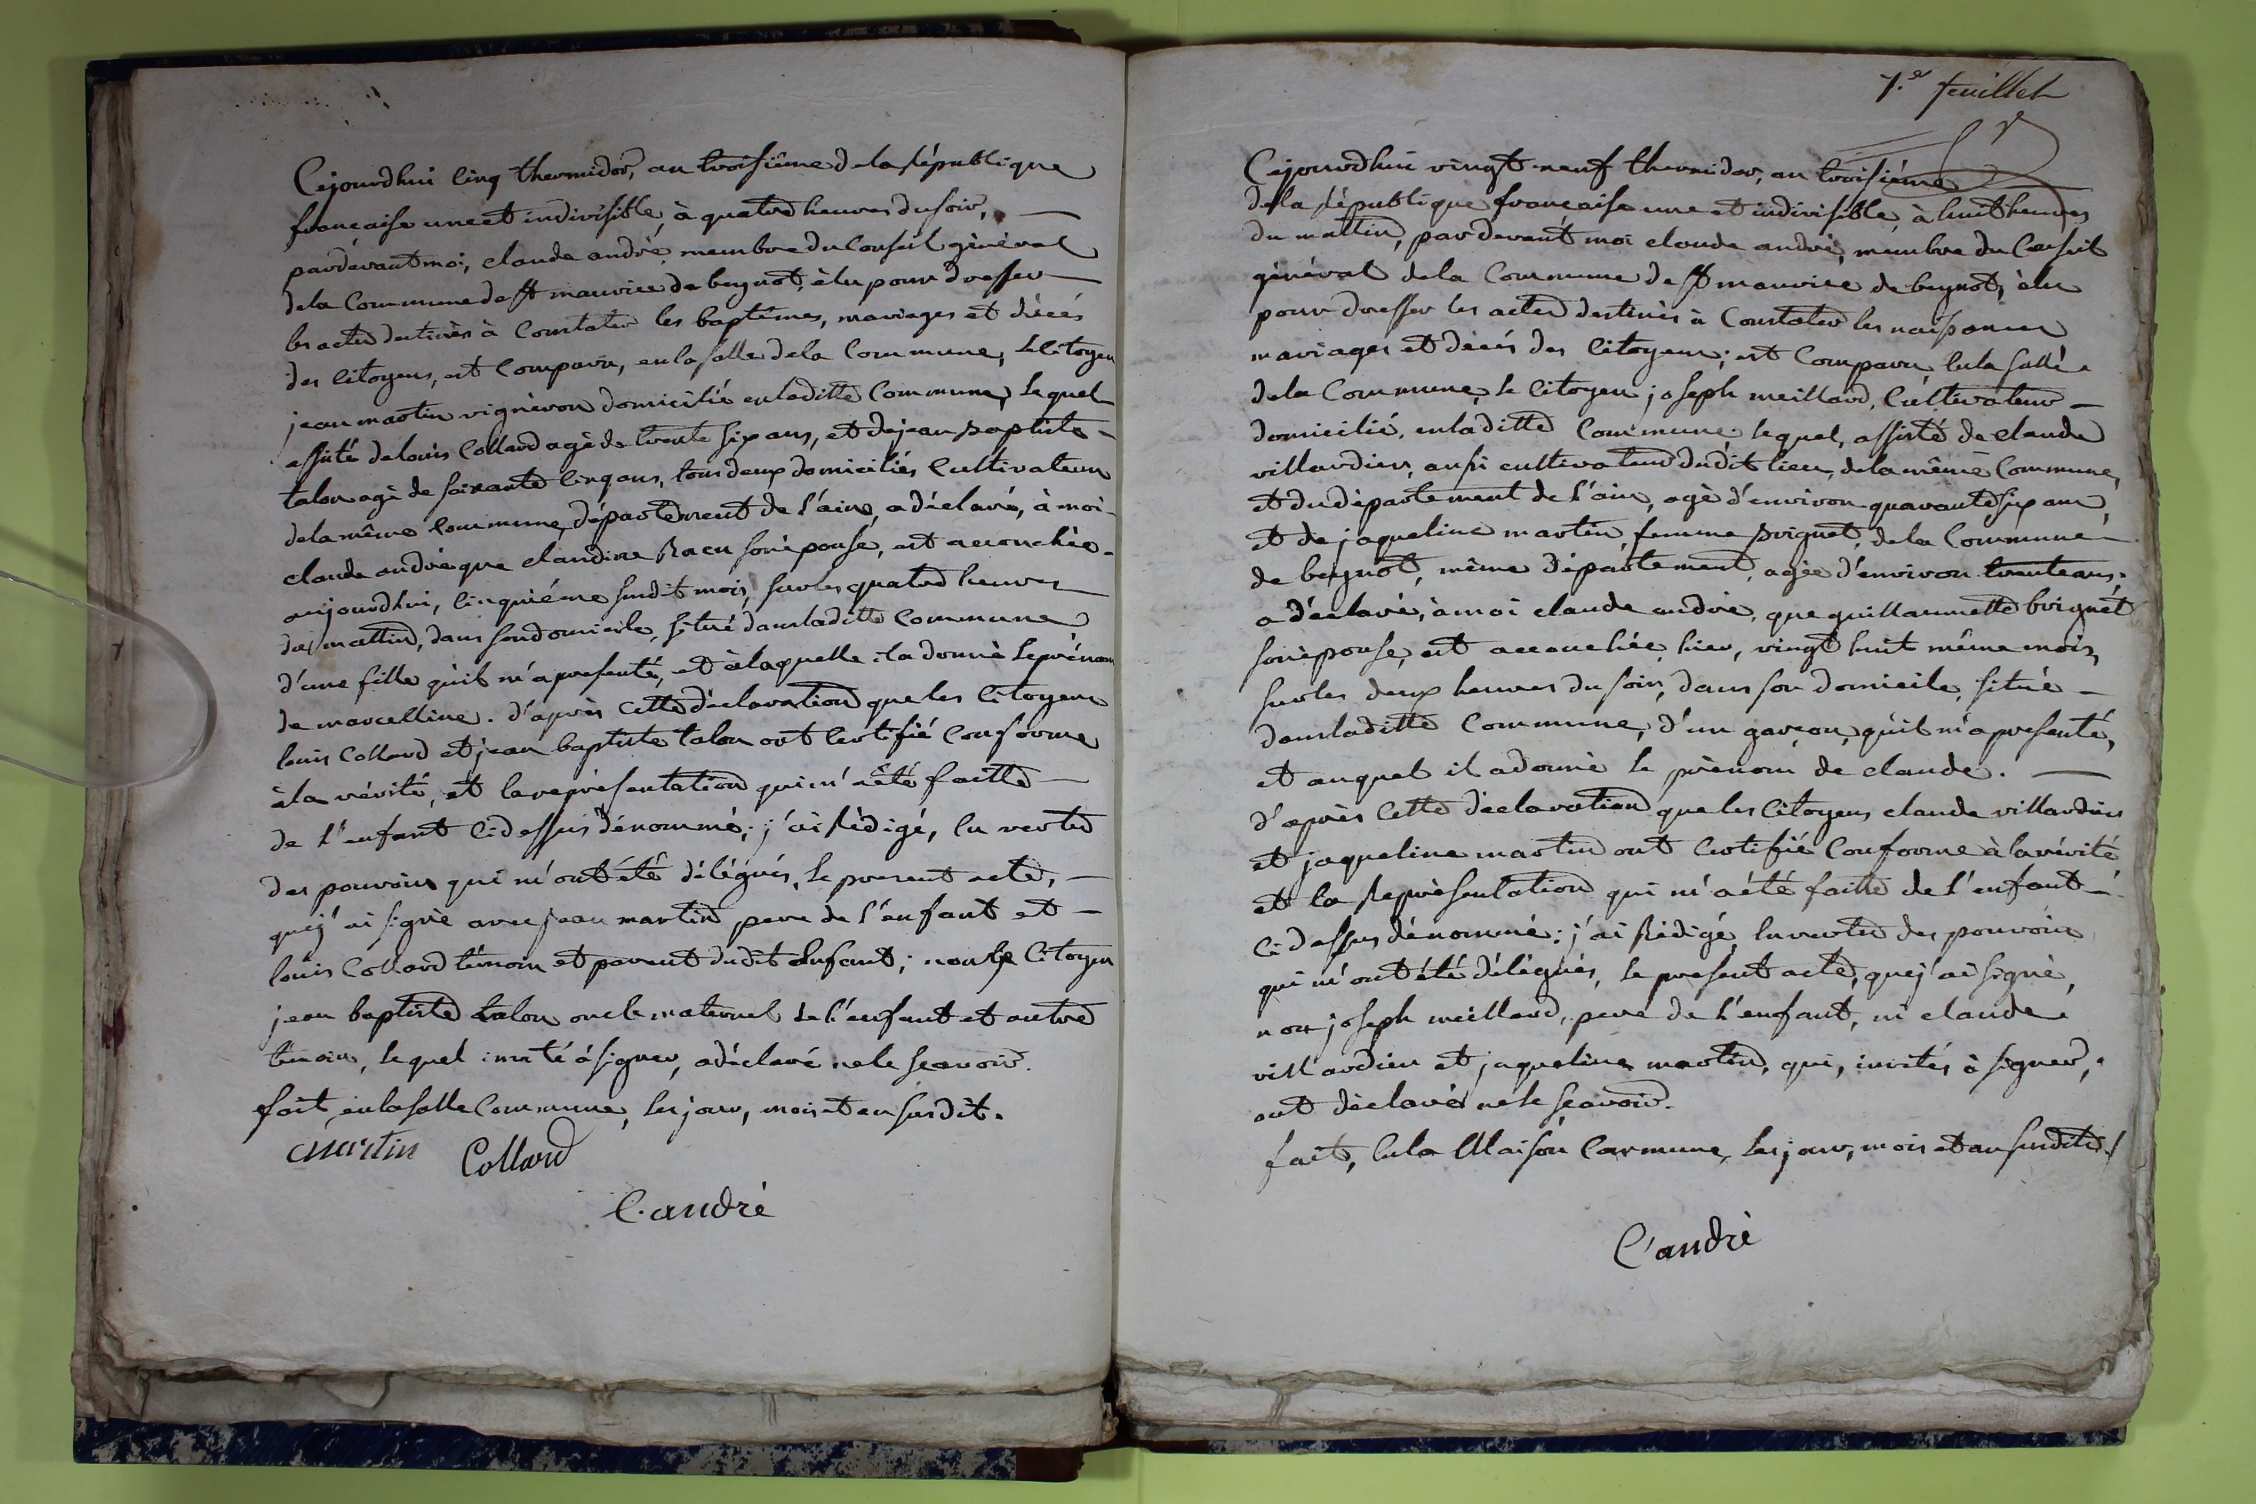 Cejourdhui cinq thermidor, an troisiême de la république
francaise une et indivisible, à quatre heures du soir,
pardevant moi, claude andrè, membre du Conseil gènèral
de la Commune de St maurice de beynot, èlu pour dresser
les actes destinès à Constater les baptêmes, mariages et dècès
des Citoyens, est Comparu, en la salle de la Commune, le Citoyen
jean martin vigneron domicilié en laditte Commune, lequel
assisté de louis Collard agè de trente six ans, et de jean baptiste
talon agè de soixante cinq ans, tous deux domiciliés Cultivateurs
de la même Commune, département de l'ain, a déclaré, à moi
claude andrè que claudine Racu son èpouse, est accouchée
aujourdhui, cinquième susdit mois, sur les quatre heures
du mattin, dans son domicile, situé dans laditte Commune
d'une fille qu'il m'a presenté, et à laquelle il a donnè le prénom
de marcelline. d'après cette déclaration que les Citoyens
louis Collard et jean baptiste talon ont Certifié Conforme
à la vérité, et la représentation qui m'a été faitte
de l'enfant Cidessus dénommé; j'ai Rédigé, en vertu
des pouvoirs qui m'ont été délégués, le present acte,
que j'ai signè avec jean martin pere de l'enfant et
louis Collard témoin et parent dudit Enfant; non le Citoyen
jean baptiste talon oncle maternel de l'enfant et autre
temoin, lequel invité à signer, a déclaré ne le sçavoir.
fait, en la salle Commune, les jour, mois et an susdit.
martin Collard
C. andrè
1.e feuillet
Cejourdhui vingt neuf thermidor, an troisiéme
de la république francaise une et indivisible, à huit heures
du mattin, par devant moi claude andrè, membre du Conseil
gènèral de la Commune de St maurice de beynot, èlu
pour dresser les actes destinès à Constater les naissances
mariages et dècès des Citoyens; est Comparu, en la salle
de la Commune, le Citoyen joseph meillard, Cultivateur
domicilié, en laditte Commune lequel, assisté de claude
villardier, aussi cultivateur dudit lieu, de la même Commune,
et du département de l'ain, agè d'environ quarante six ans,
et de jaqueline martin, femme brignet, de la Commune
de beynot, même département, agèe d'environ trente ans;
a déclaré, à moi claude andrè, que guillaumette brignet
son èpouse, est accouchée, hier, vingt huit même mois,
sur les deux heures du soir, dans son domicile, situé
dans laditte Commune, d'un garçon, qu'il m'a presenté,
et auquel il a donnè le prènom de claude.
d'après cette déclaration que les Citoyens claude villardier
et jaqueline martin ont Certifié Conforme à la vérité
et la Représentation qui m'a été faitte de l'enfant
Cidessus dénommé; j'ai Rédigé, en vertu des pouvoirs
qui m'ont été délégués, le présent acte, que j'ai signè,
non joseph meillard, pere de l'enfant, ni claude
villardier et jaqueline martin, qui, invités à signer,
ont déclaré ne le sçavoir.
fait, en la Maison Commune, les jour, mois et an susdits.
C. andrè